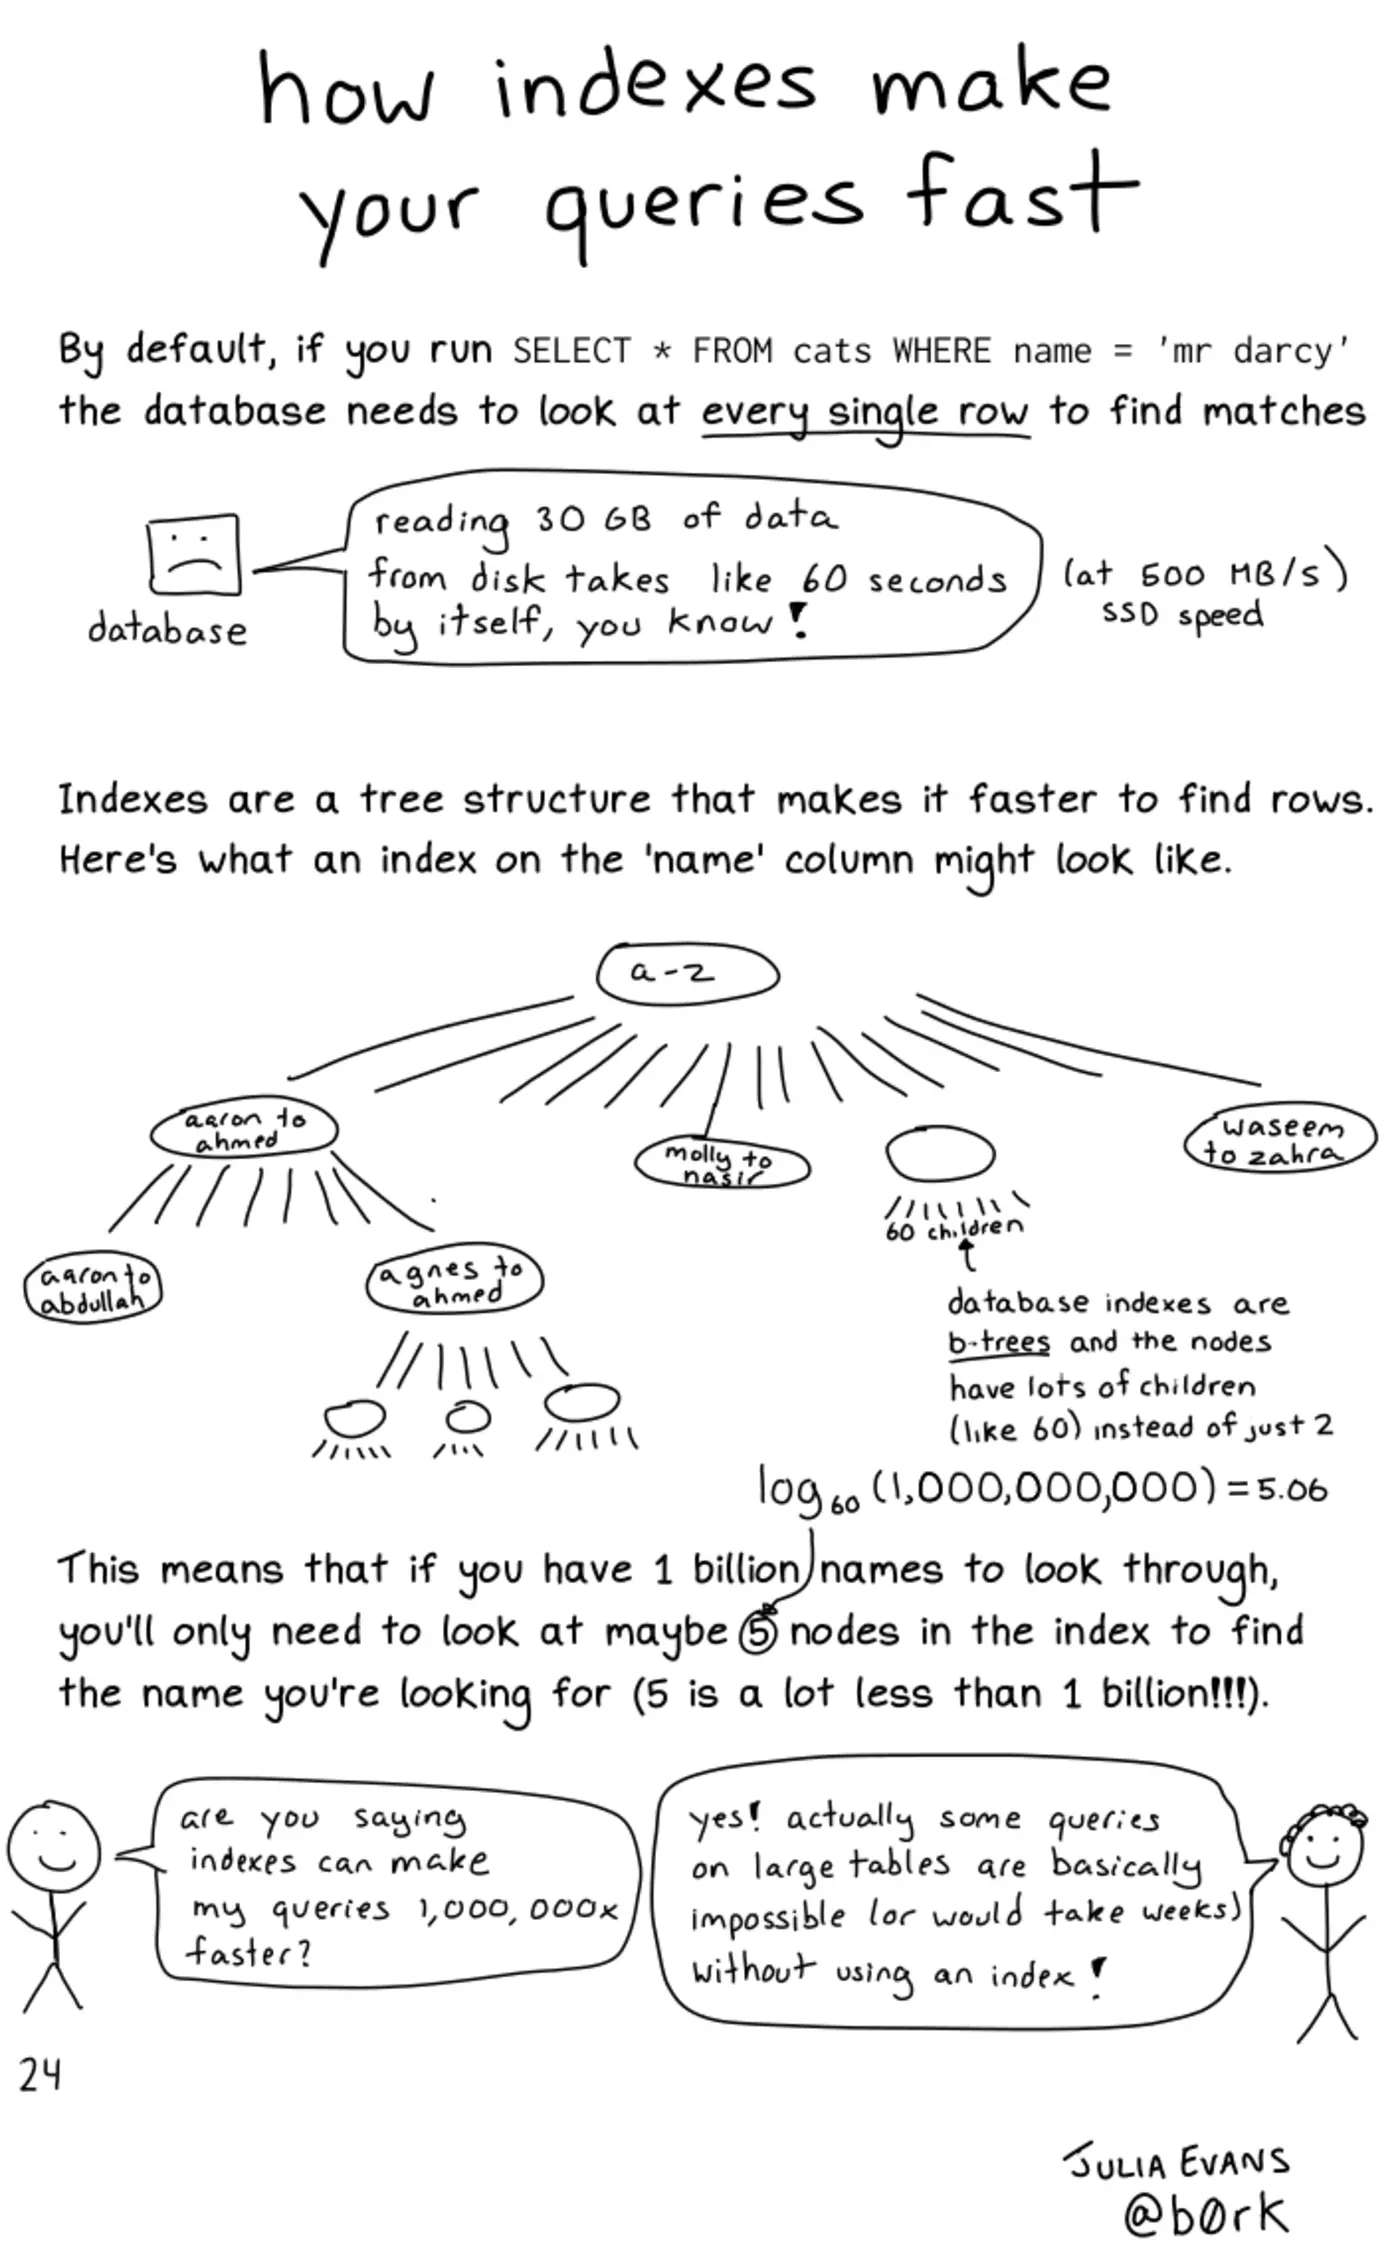 how indexes make
your queries fast
By default, if you run SELECT * FROM cats WHERE name = 'mr darcy'
the database needs to look at every single row to find matches
reading 30 GB of data
from disk takes like 60 seconds
by itself, you know!
(at 500 MB/s)
SSD speed
database
Indexes are a tree structure that makes it faster to find rows.
Here's what an index on the 'name' column might look like.
a-z
aaron to
ahmed
molly to
nasir
waseem
to zahra
60 children
aaron to
abdullah
agnes to
ahmed
database indexes are
b-trees and the nodes
have lots of children
(like 60) instead of just 2
log60 (1,000,000,000) = 5.06
This means that if you have 1 billion names to look through,
you'll only need to look at maybe 5 nodes in the index to find
the name you're looking for (5 is a lot less than 1 billion!!!).
are you saying
indexes can make
my queries 1,000,000x
faster?
yes! actually some queries
on large tables are basically
impossible (or would take weeks)
without using an index!
24
JULIA EVANS
@b0rk